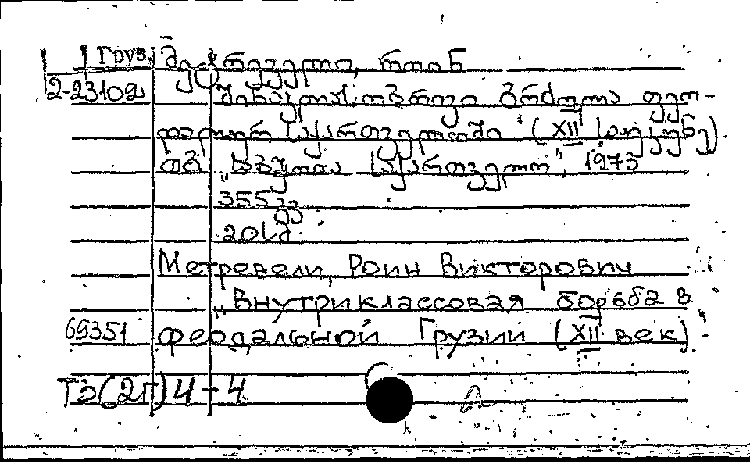 Груз მეტრეველი, როინ
2-23102 შინაკლასობრივი ბრძოლა ფეო-
დალურ საქართველოში (XII საუკუნე)
თბ. „საბჭოთა საქართველო", 1973
355 გვ
20სმ
Метревели, Роин Викторович
„Внутриклассовая борьба в
69351 феодальной Грузии (XII век)"
Тэ(2Г)4-4